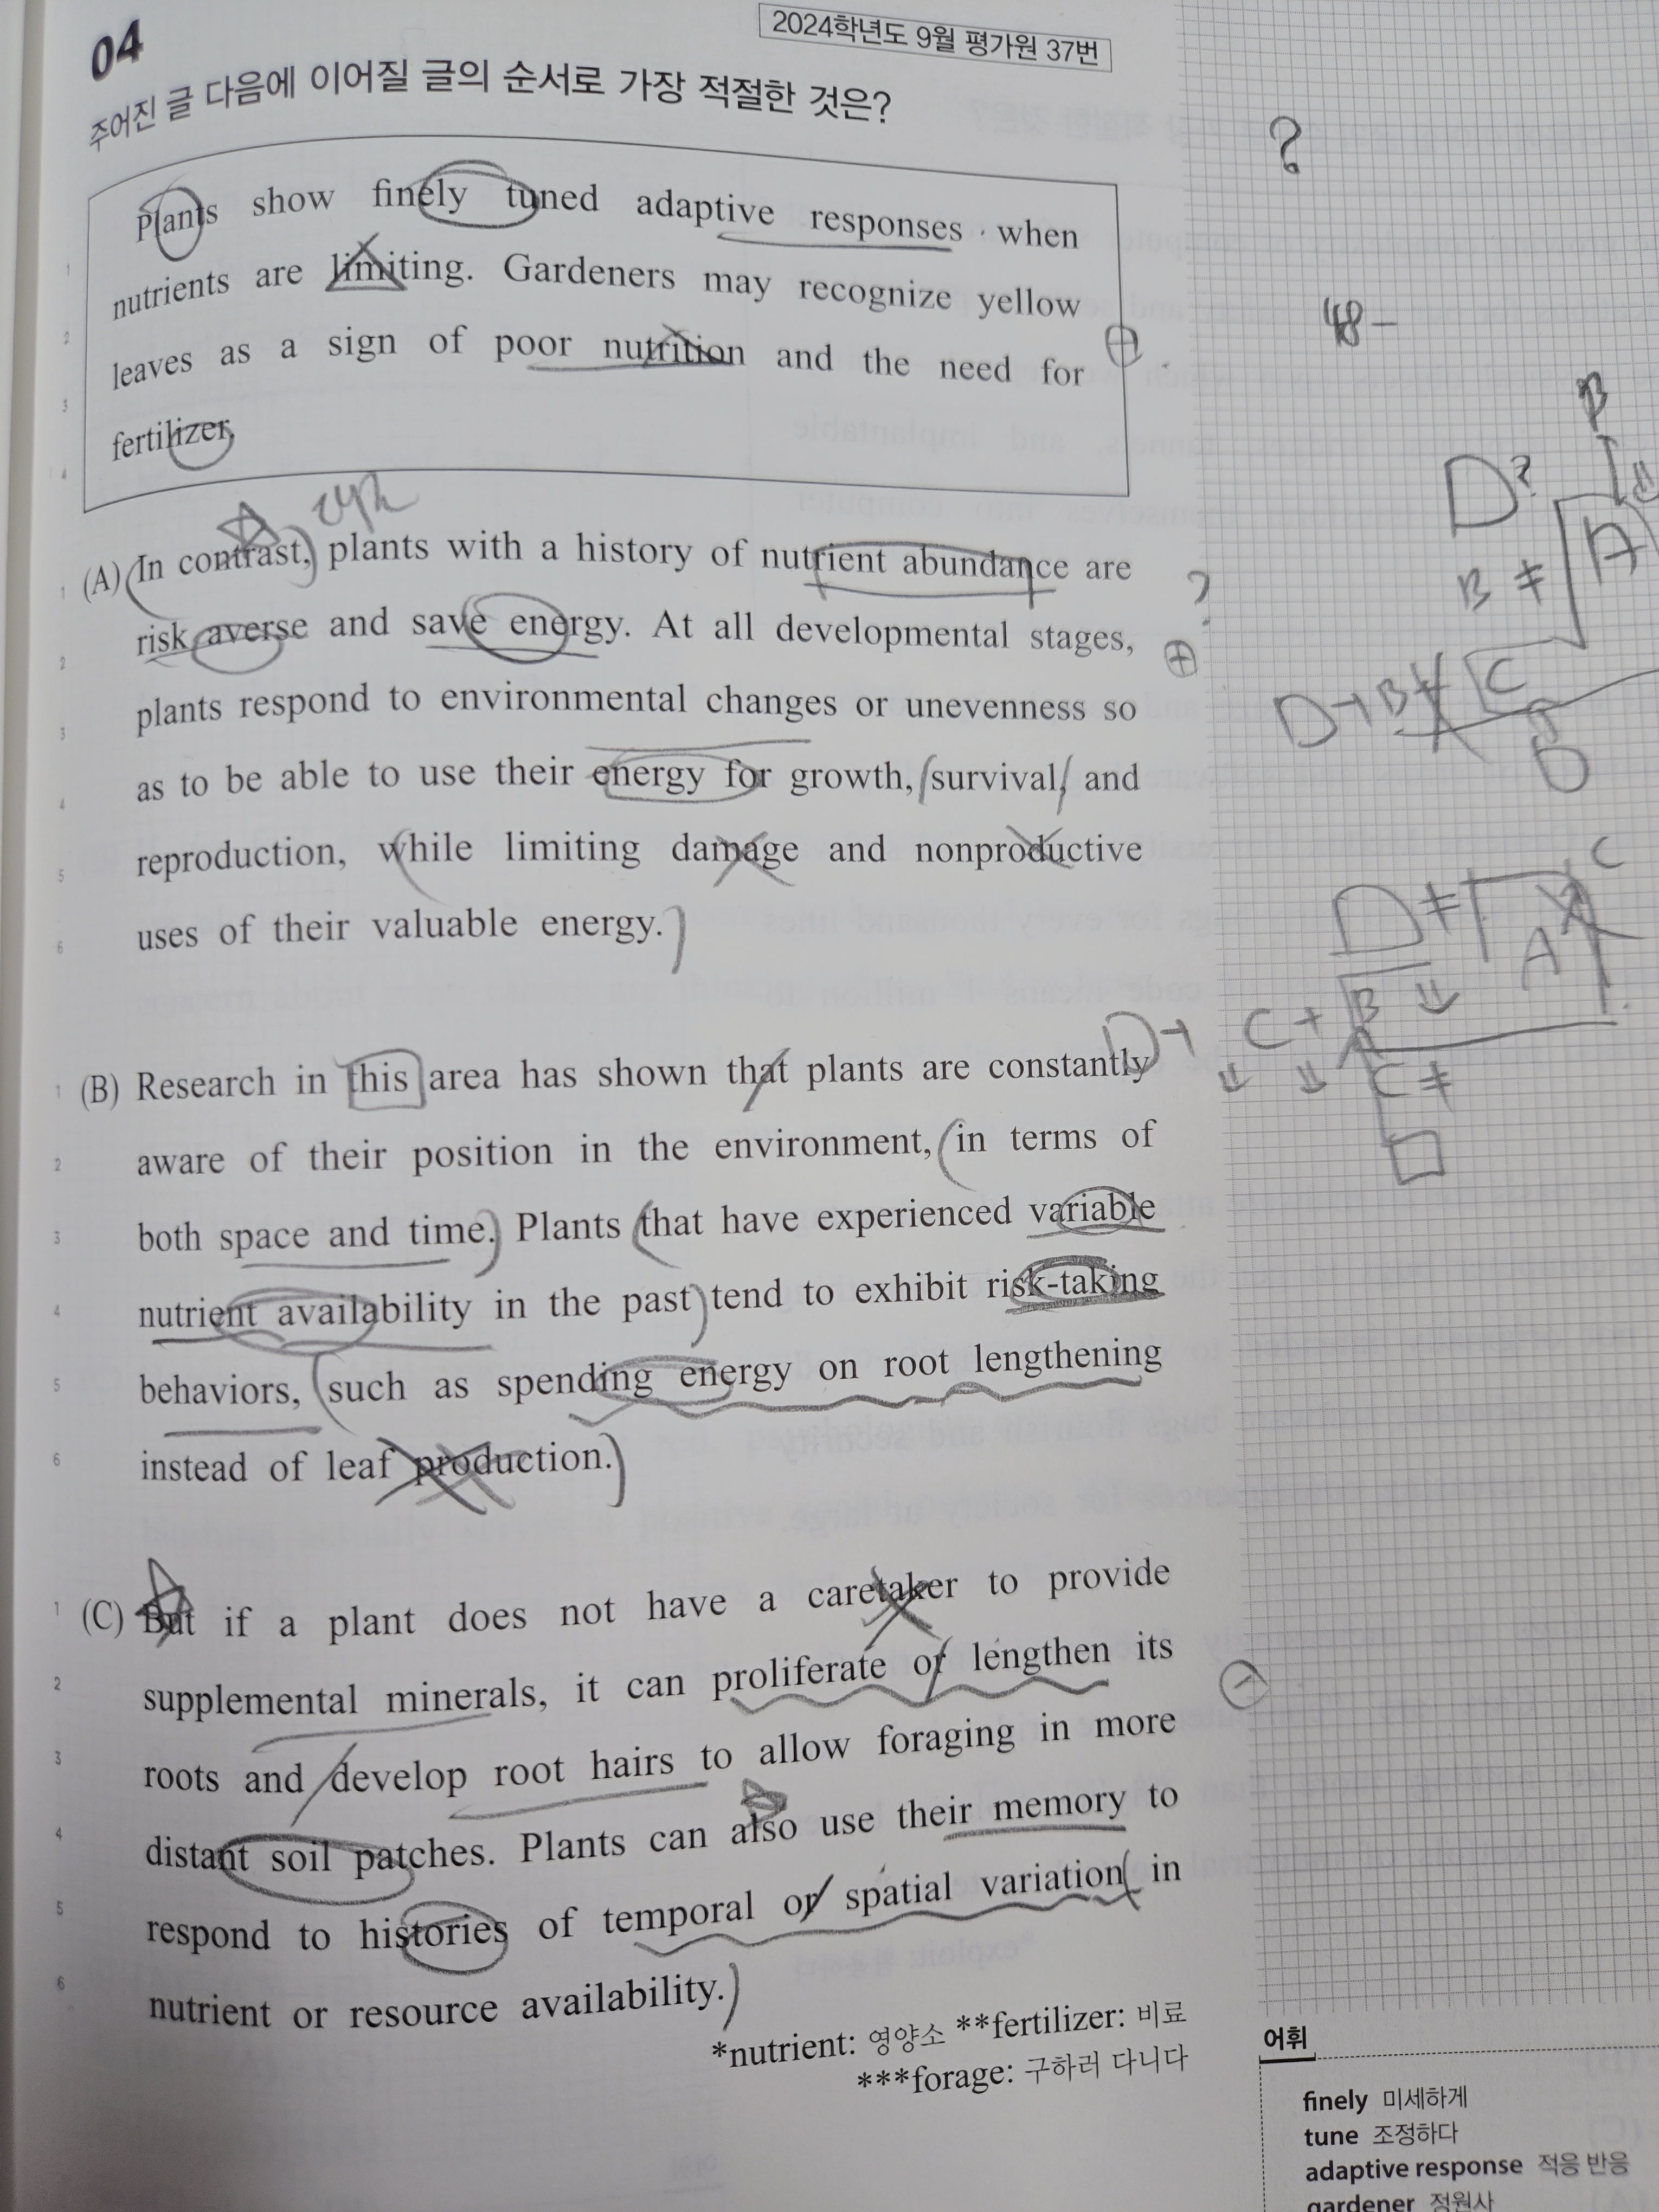 04
2024학년도 9월 평가원 37번
주어진 글 다음에 이어질 글의 순서로 가장 적절한 것은?
?
Plants show finely tuned adaptive responses when
1
nutrients are limiting. Gardeners may recognize yellow
48-
2
leaves as a sign of poor nutrition and the need for
3
fertilizer.
4
B
D?
A
(A) In contrast, plants with a history of nutrient abundance are
1
B ≠
risk averse and save energy. At all developmental stages,
2
plants respond to environmental changes or unevenness so
3
C
D
as to be able to use their energy for growth, survival, and
4
reproduction, while limiting damage and nonproductive
5
C
uses of their valuable energy.
6
D ≠
A
D+ C + B
(B) Research in this area has shown that plants are constantly
1
C ≠
aware of their position in the environment, in terms of
2
both space and time. Plants that have experienced variable
3
nutrient availability in the past tend to exhibit risk-taking
4
behaviors, such as spending energy on root lengthening
5
instead of leaf production.
6
(C) But if a plant does not have a caretaker to provide
1
supplemental minerals, it can proliferate or lengthen its
2
roots and develop root hairs to allow foraging in more
3
distant soil patches. Plants can also use their memory to
4
respond to histories of temporal or spatial variation in
5
nutrient or resource availability.
6
*nutrient: 영양소 **fertilizer: 비료
***forage: 구하러 다니다
어휘
finely 미세하게
tune 조정하다
adaptive response 적응 반응
gardener 정원사